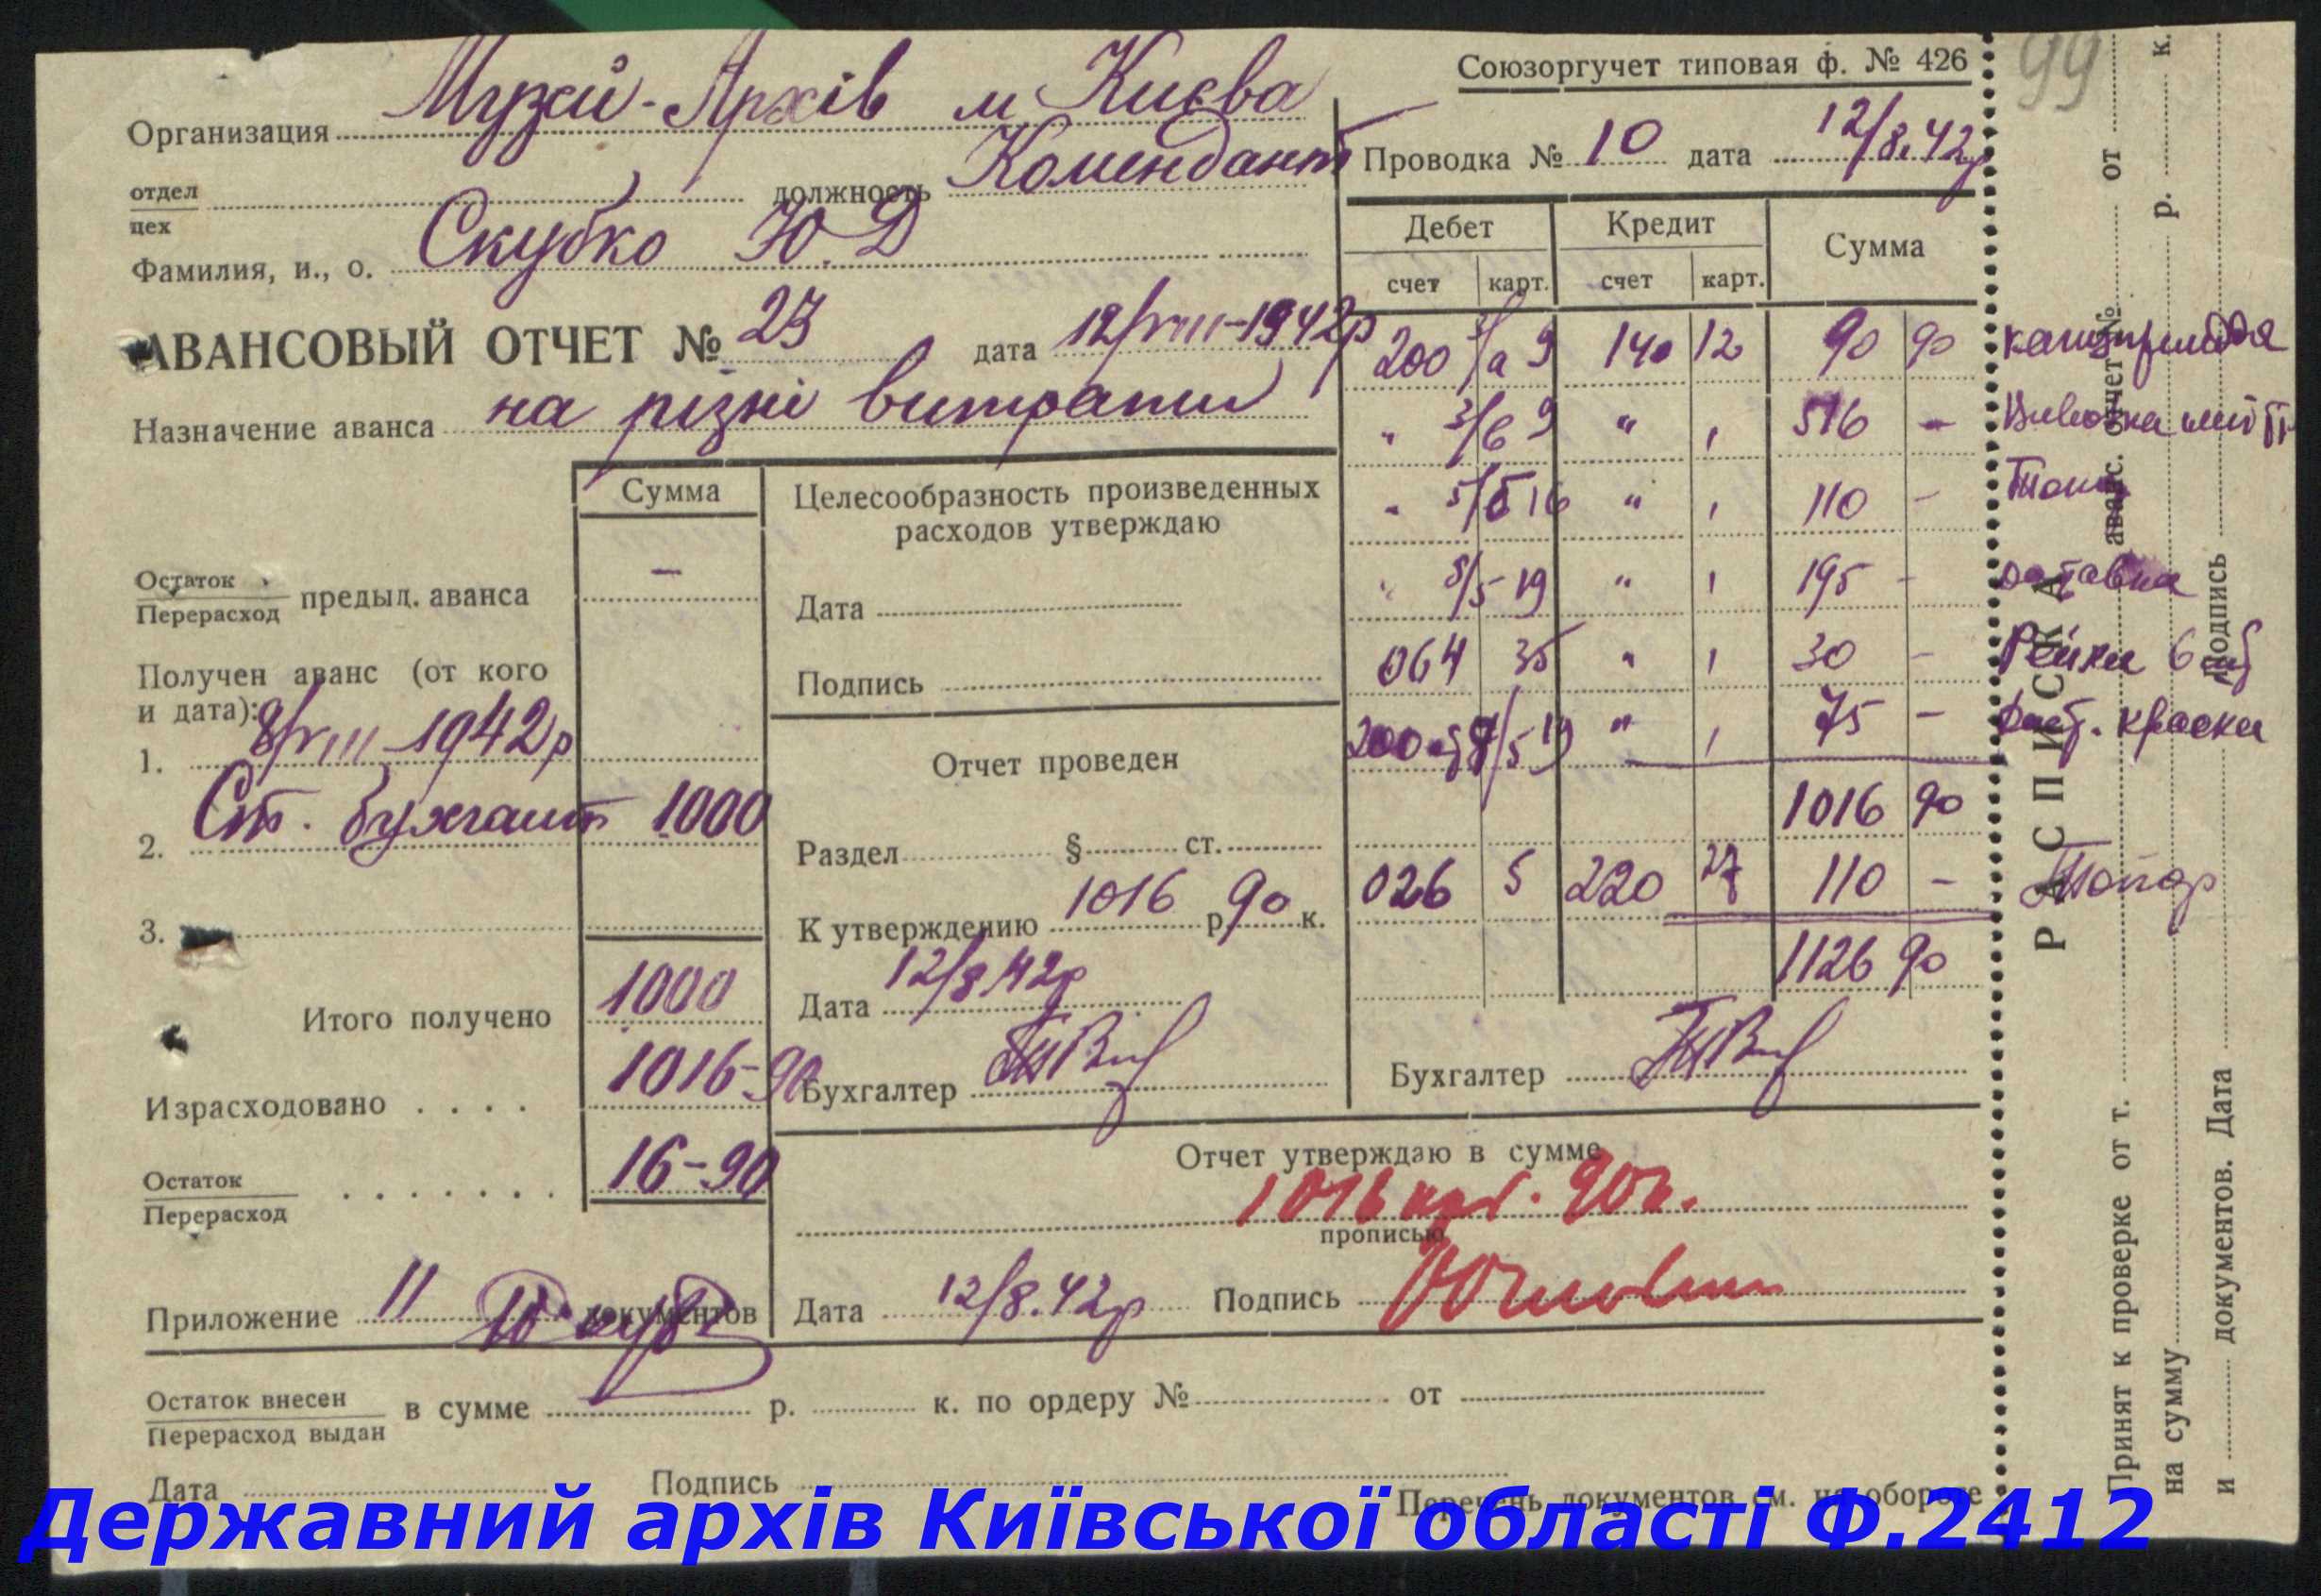 Союзоргучет типовая ф. № 426
99
Организация Музей-Архів м Києва
отдел
цех
должность Комендант
Фамилия, и., о. Скубко Ю.Д
АВАНСОВЫЙ ОТЧЕТ № 23 дата 12/VIII-1942р
Назначение аванса на різні витрати
Сумма
Остаток
Перерасход
предыд. аванса –
Получен аванс (от кого
и дата):
1. 8/VIII 1942р
2. Ст. бухгалт 1000
3.
Итого получено 1000
Израсходовано . . . . 1016-90
Остаток
Перерасход
. . . . . . . 16-90
Приложение 11 документов
Целесообразность произведенных
расходов утверждаю
Дата
Подпись
Отчет проведен
Раздел § ст.
К утверждению 1016 р. 90 к.
Дата 12/8.42р
Бухгалтер
Проводка № 10 дата 12/8.42р
Дебет Кредит Сумма
счет карт. счет карт.
200 3/а 9 140 12 90 90 канцприладдя
" 3/в 9 " " 516 –
" 5/Б 16 " " 110 –
" 8/5 19 " " 195 –
064 35 " " 30 – Рейки 6 шт
200 8/5 19 " " 75 – краски
1016 90
026 5 220 27 110 – Топор
1126 90
Бухгалтер
Отчет утверждаю в сумме
1016 крб. 90 к.
прописью
Дата 12/8.42р Подпись
Остаток внесен
Перерасход выдан
в сумме р. к. по ордеру № от
Дата Подпись
Перечень документов см. на обороте
РАСПИСКА
Принят к проверке от т. аванс. отчет № от
на сумму р. к.
и документов. Дата Подпись
Державний архів Київської області Ф.2412